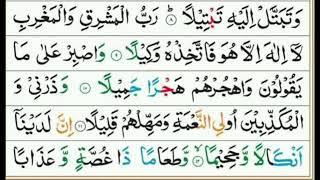 وَتَبَتَّلْ اِلَيْهِ تَبْتِيْلًا ۝٨ رَبُّ الْمَشْرِقِ وَالْمَغْرِبِ
لَاۤ اِلٰهَ اِلَّا هُوَ فَاتَّخِذْهُ وَكِيْلًا ۝٩ وَاصْبِرْ عَلٰى مَا
يَقُوْلُوْنَ وَاهْجُرْهُمْ هَجْرًا جَمِيْلًا ۝١٠ وَذَرْنِيْ وَ
الْمُكَذِّبِيْنَ اُولِي النَّعْمَةِ وَمَهِّلْهُمْ قَلِيْلًا ۝١١ اِنَّ لَدَيْنَاۤ
اَنْكَالًا وَّجَحِيْمًا ۝١٢ وَّطَعَامًا ذَا غُصَّةٍ وَّعَذَابًا